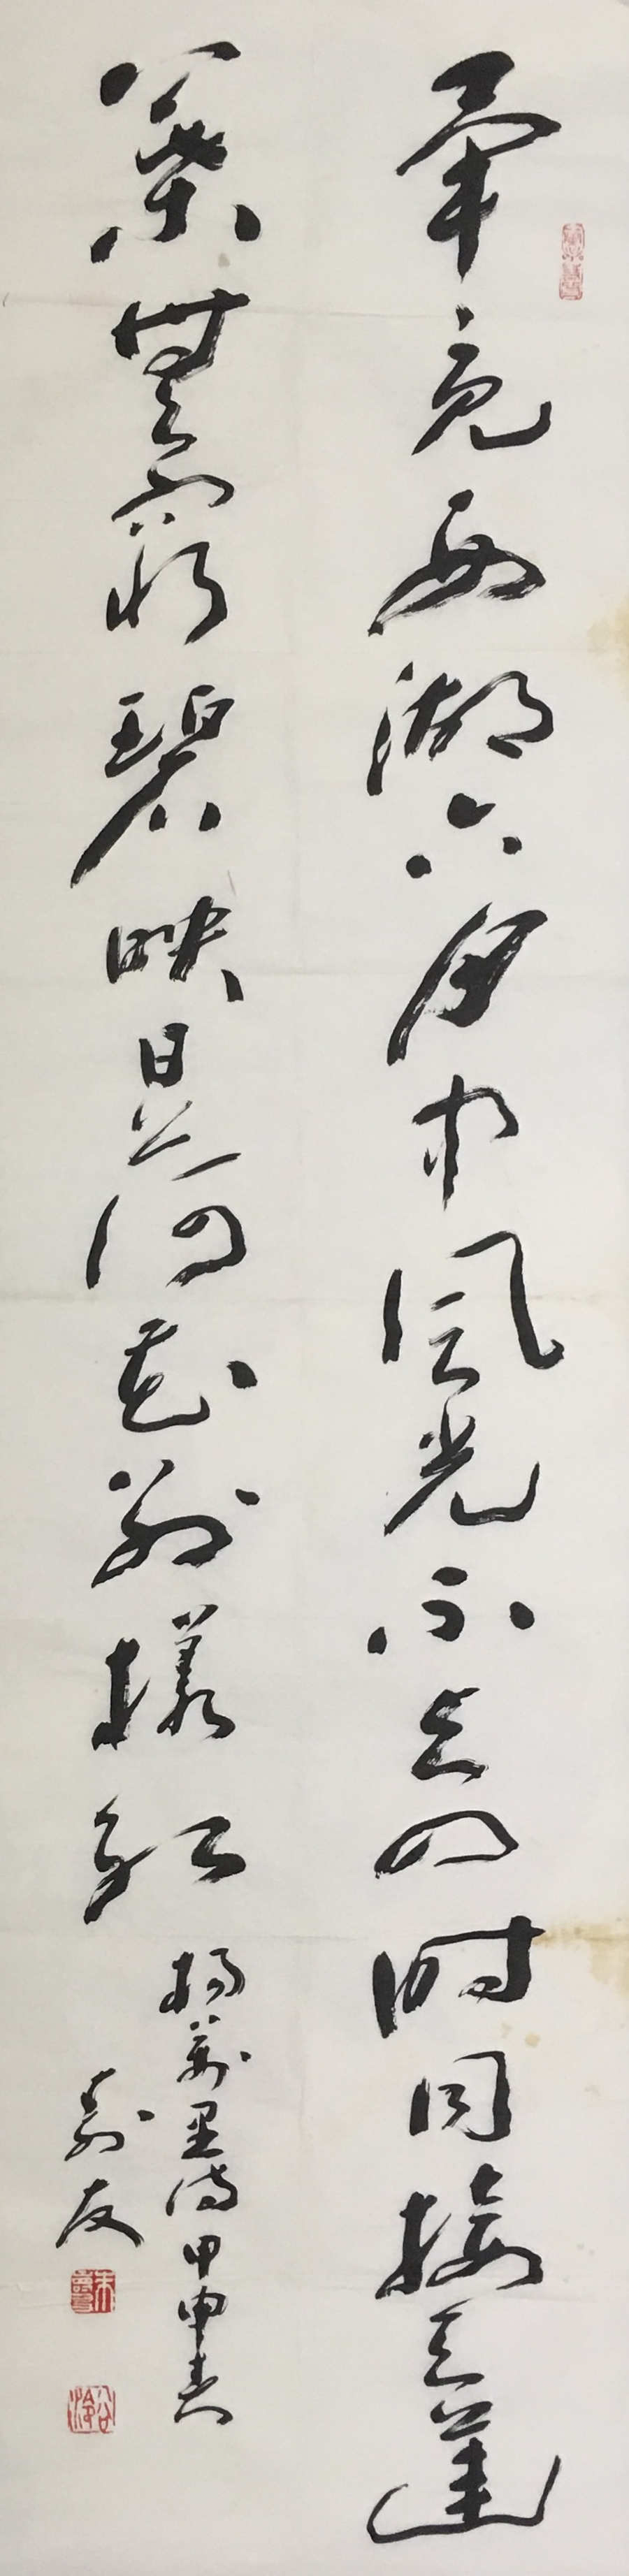 畢竟西湖六月中風光不与四時同接天蓮
葉無窮碧映日荷花別樣紅
楊萬里詩甲申春
壽友